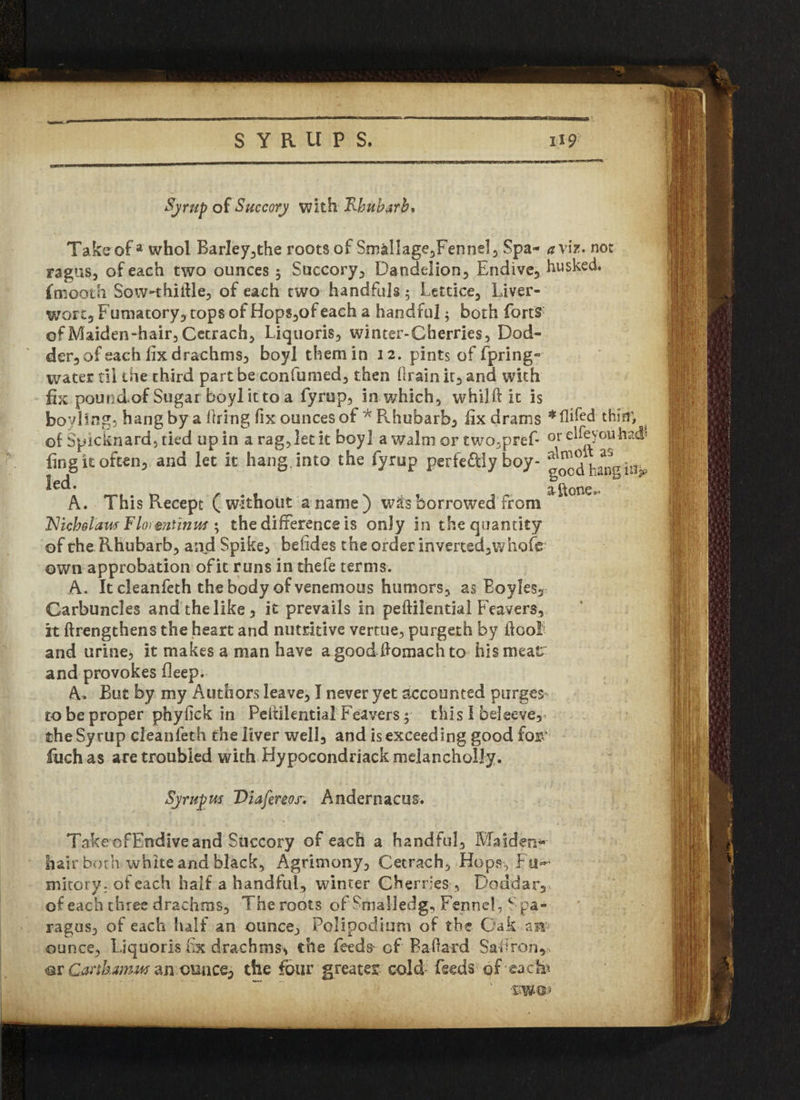 SYRUPS. 119
Syrup of Succory with Rhubarb.
Take of ᵃ whol Barley,the roots of Smallage,Fennel, Spa-
ragus, of each two ounces ; Succory, Dandelion, Endive,
ſmooth Sow-thiſtle, of each two handfuls ; Lettice, Liver-
wort, Fumatory, tops of Hops,of each a handful ; both ſorts
of Maiden-hair, Cetrach, Liquoris, winter-Cherries, Dod-
der, of each ſix drachms, boyl them in 12. pints of ſpring-
water til the third part be conſumed, then ſtrain it, and with
ſix pound.of Sugar boyl it to a ſyrup, in which, whilſt it is
boyling, hang by a ſtring ſix ounces of * Rhubarb, ſix drams
of Spicknard, tied up in a rag, let it boyl a walm or two,preſ-
ſing it often, and let it hang into the ſyrup perfectly boy-
led.
a viz. not
husked.
* ſliſed thin,
or elſe you had
almoſt as
good hang in
a ſtone.
A. This Recept ( without a name ) was borrowed from
Nicholaus Florentinus ; the difference is only in the quantity
of the Rhubarb, and Spike, beſides the order inverted,whoſe
own approbation of it runs in theſe terms.
A. It cleanſeth the body of venemous humors, as Boyles,
Carbuncles and the like , it prevails in peſtilential Feavers,
it ſtrengthens the heart and nutritive vertue, purgeth by ſtool
and urine, it makes a man have a good ſtomach to his meat
and provokes ſleep.
A. But by my Authors leave, I never yet accounted purges
to be proper phyſick in Peſtilential Feavers ; this I beleeve,
the Syrup cleanſeth the liver well, and is exceeding good for
ſuch as are troubled with Hypocondriack melancholly.
Syrupus Diaſereos. Andernacus.
Take of Endive and Succory of each a handful, Maiden-
hair both white and black, Agrimony, Cetrach, Hops, Fu-
mitory, of each half a handful, winter Cherries , Doddar,
of each three drachms, The roots of Smalledg, Fennel, Spa-
ragus, of each half an ounce, Polipodium of the Oak an
ounce, Liquoris ſix drachms, the ſeeds of Baſtard Saffron,
or Carthamus an ounce, the four greater cold ſeeds of each
two